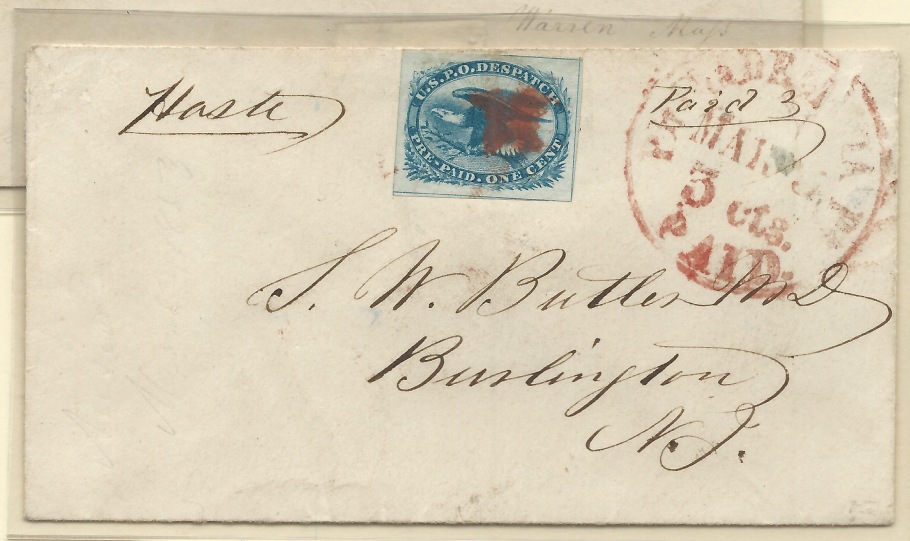 Warren Mass
Haste
U.S.P.O. DESPATCH
PRE-PAID. ONE CENT
Paid 3
MAR
3 CTS.
PAID.
S. W. Butler MD
Burlington
N.J.